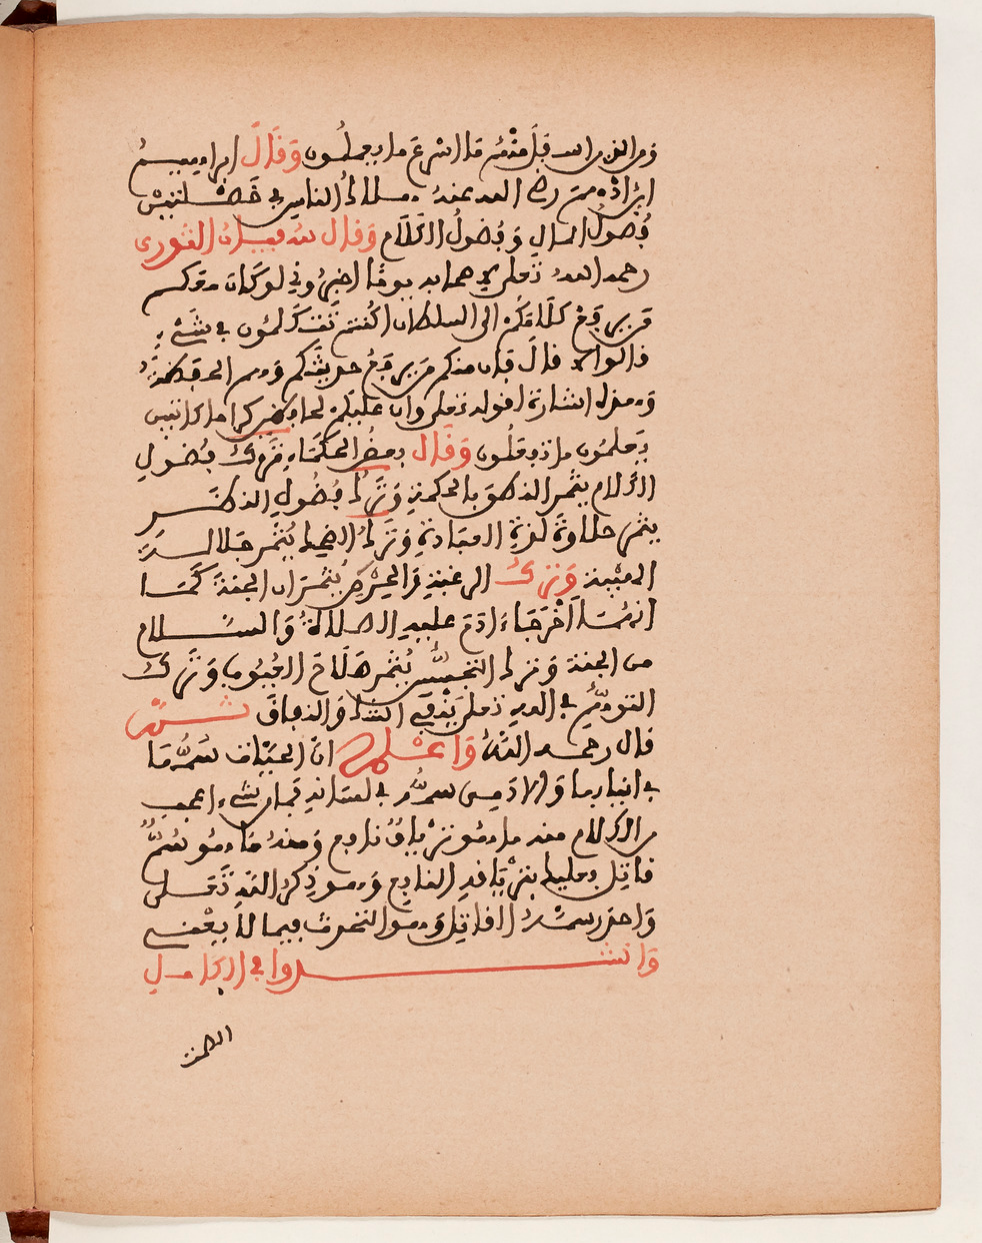 ومن الفرس اسـ قبل منه ما اسرع ما يعملون وقال ابراهيم
ابن ادهم رضي الله عنه هلاك الناس في خصلتين
فضول المال وفضول الكلام وقال سفيان الثورى
رحمه الله تعلى لاصحابه يوما اخبروني لو كان معكم
من يرفع كلامكم الى السلطان اكنتم تتكلمون في شيء
فالوا لا فال فان معكم من يرفع حديثكم وهم الحفظة
وهذه اشارة لقوله تعلى وان عليكم لحافظين كراما كاتبين
يعلمون ما تفعلون وقال بعض الحكماء ترك فضول
الكلام يثمر النطق بالحكمة وترك فضول النظـر
يثمر حلاوة لذة العبادة وترك الضحك يثمر جلالـة
الهيبة وترك الرغبة في الحرص يثمر ان الجنة كما
انهما اخرجا ءادم عليه الصلاة والسـلام
من الجنة وترك التجسس يثمر صلاح العيوب وترك
التوهم في الله تعلى ينفي الشك والنفاق ثـم
قال رحمه الله واعلم ان الحيات سمها
في انيابها والادمي سمه في لسانه فما شيء اعجب
من الكلام منه ما هو ترياق نافع ومنه ما هو سم
قاتل فعليك بترياقه النافع وهو ذكر الله تعـلى
واحذر سمه القاتل وهو التحدث فيما لا يعنى
وانشـدوا في الكامـل
الصمت